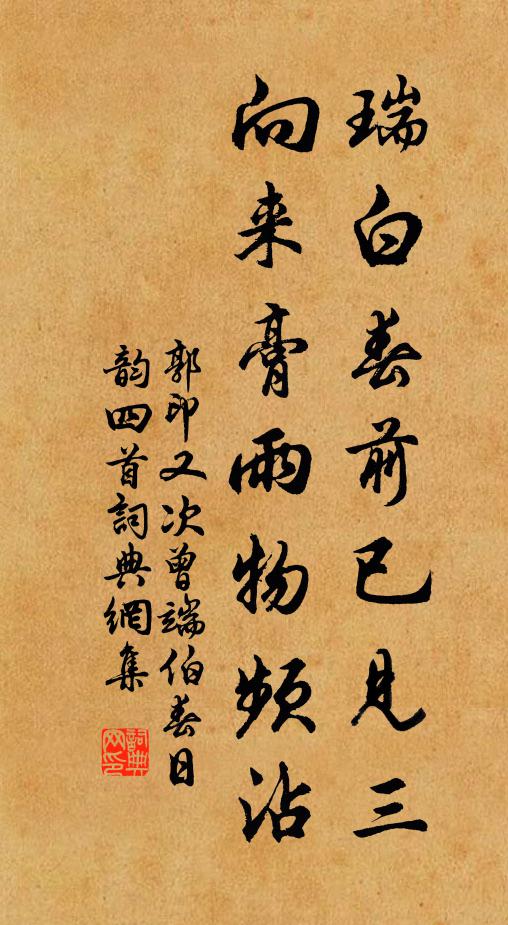 瑞白春前已見三
向来膏雨物頻沾
郭印又次曾端伯春日
韵四首詞典網集
詞典網印